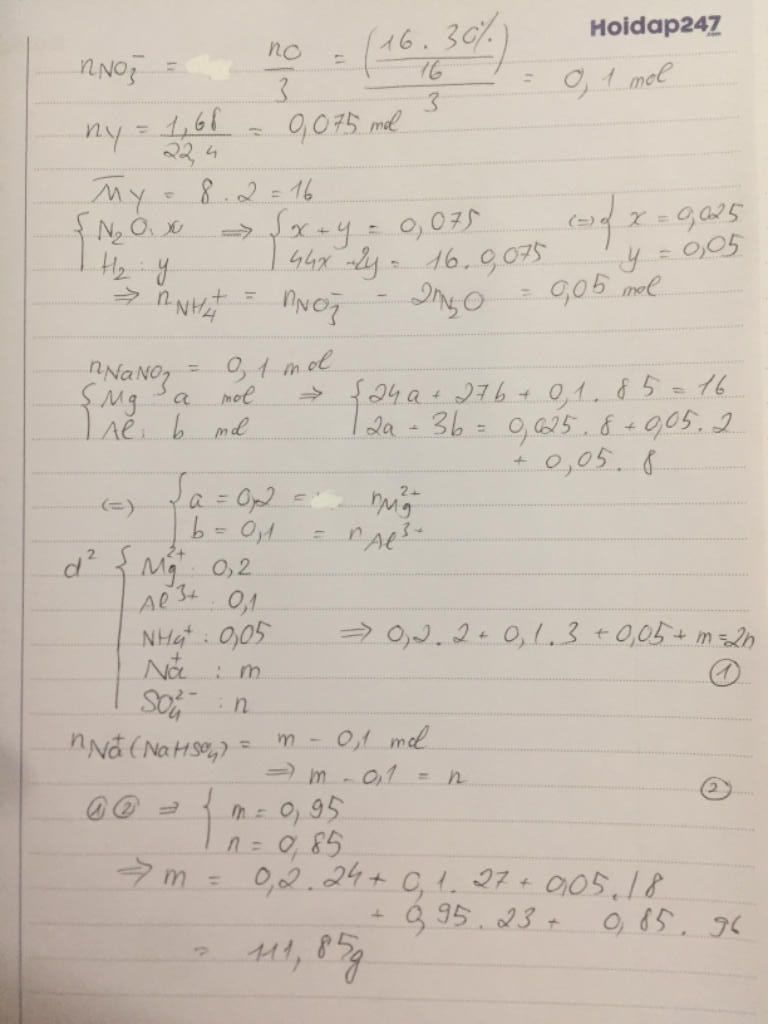 Hoidap247.com
nNO3⁻ = nO/3 = (16.30%/16)/3 = 0,1 mol
nY = 1,68/22,4 = 0,075 mol
M̅Y = 8.2 = 16
{ N2O: x ⇒ { x + y = 0,075 (=) { x = 0,025
H2: y 44x + 2y = 16.0,075 y = 0,05
⇒ nNH4⁺ = nNO3⁻ - 2nN2O = 0,05 mol
nNaNO3 = 0,1 mol
{ Mg: a mol ⇒ { 24a + 27b + 0,1.85 = 16
Al: b mol 2a + 3b = 0,025.8 + 0,05.2
+ 0,05.8
(=) { a = 0,2 = nMg²⁺
b = 0,1 = nAl³⁺
d² { Mg²⁺: 0,2
Al³⁺: 0,1
NH4⁺: 0,05 ⇒ 0,2.2 + 0,1.3 + 0,05 + m = 2n
Na⁺: m ①
SO4²⁻: n
nNa⁺(NaHSO4) = m - 0,1 mol
⇒ m - 0,1 = n ②
①② ⇒ { m = 0,95
n = 0,85
⇒ m = 0,2.24 + 0,1.27 + 0,05.18
+ 0,95.23 + 0,85.96
= 111,85g